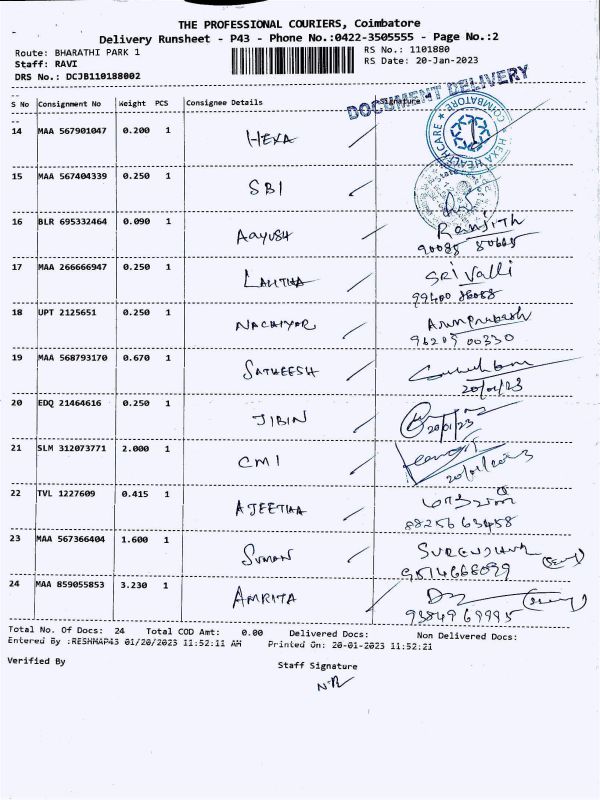 THE PROFESSIONAL COURIERS, Coimbatore
Delivery Runsheet - P43 - Phone No.:0422-3505555 - Page No.:2
Route: BHARATHI PARK 1
RS No.: 1101880
Staff: RAVI
RS Date: 20-Jan-2023
DRS No.: DCJB110188002
DOCUMENT DELIVERY
S No Consignment No Weight PCS Consignee Details Signature
HEXA HEALTHCARE ★ COIMBATORE ★
14 MAA 567901047 0.200 1 HEXA
15 MAA 567404339 0.250 1 SBI
16 BLR 695332464 0.090 1 AAYUSH Ranjith
17 MAA 266666947 0.250 1 LALITHA SRI Valli
18 UPT 2125651 0.250 1 NACHIYAR Arunprakash
19 MAA 568793170 0.670 1 SATHEESH
20/01/23
20 EDQ 21464616 0.250 1 JIBIN
20/01/23
21 SLM 312073771 2.000 1 CMI
20/01/2023
22 TVL 1227609 0.415 1 AJEETHA
88256 63458
23 MAA 567366404 1.600 1 SUMAN
24 MAA 859055853 3.230 1 AMRITA
93849 69995
Total No. Of Docs: 24 Total COD Amt: 0.00 Delivered Docs: Non Delivered Docs:
Entered By :RESHMAP43 01/20/2023 11:52:11 AM Printed On: 20-01-2023 11:52:21
Verified By
Staff Signature